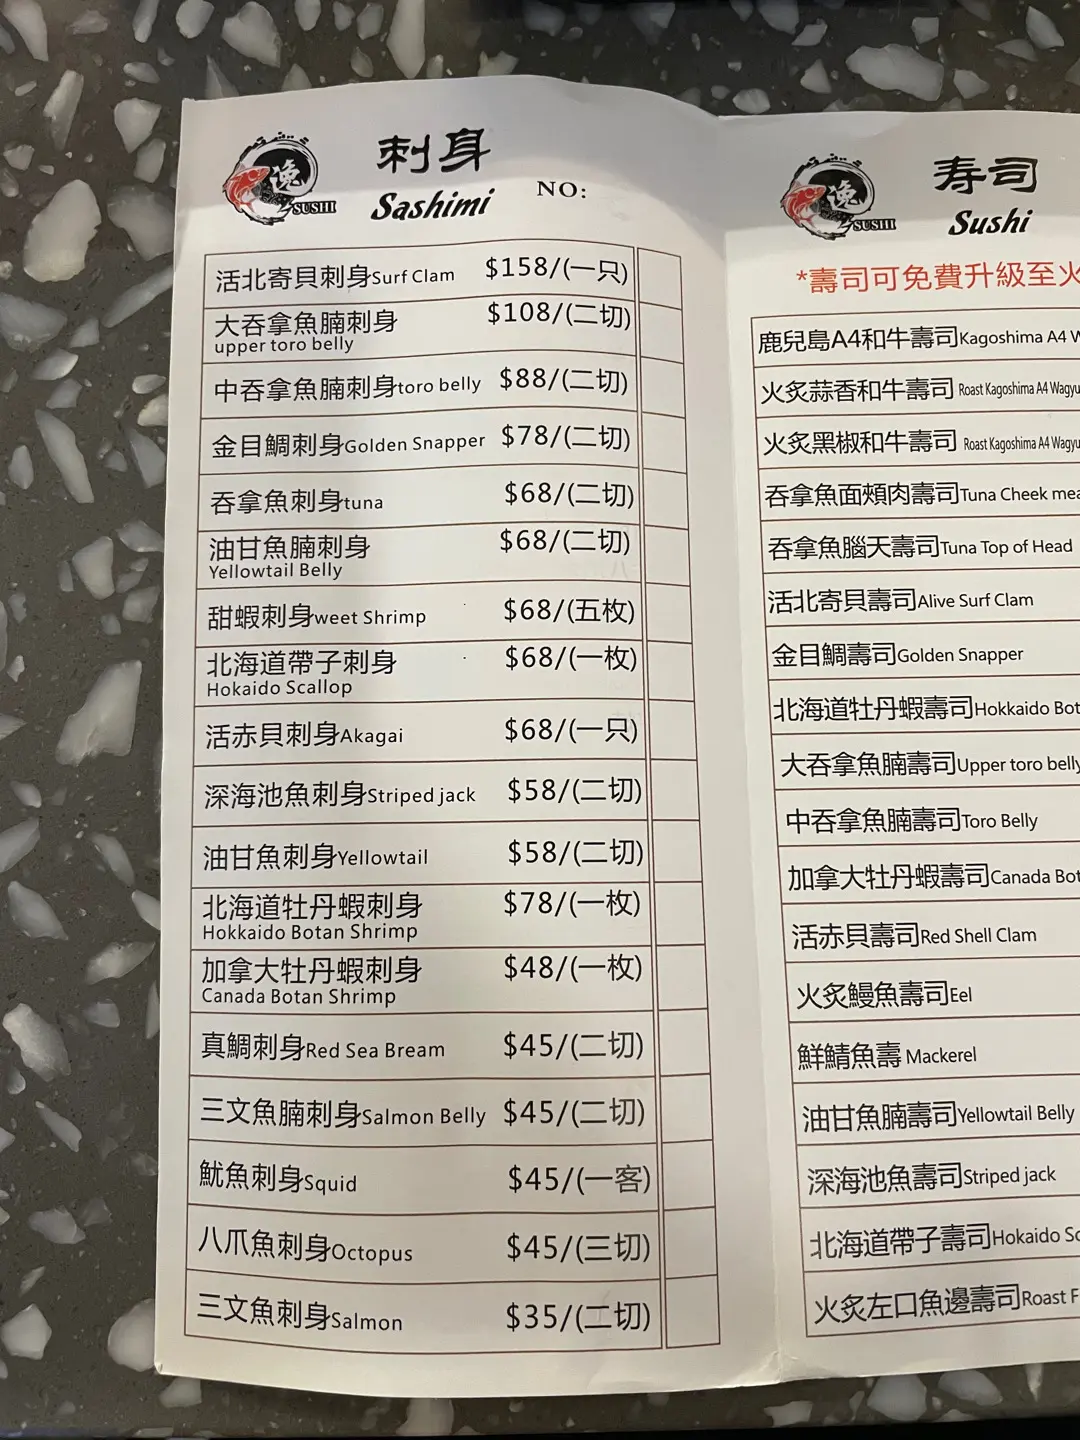 逸
SUSHI
刺身
Sashimi
NO:
活北寄貝刺身Surf Clam $158/(一只)
大吞拿魚腩刺身 $108/(二切)
upper toro belly
中吞拿魚腩刺身toro belly $88/(二切)
金目鯛刺身Golden Snapper $78/(二切)
吞拿魚刺身tuna $68/(二切)
油甘魚腩刺身 $68/(二切)
Yellowtail Belly
甜蝦刺身weet Shrimp $68/(五枚)
北海道帶子刺身 $68/(一枚)
Hokaido Scallop
活赤貝刺身Akagai $68/(一只)
深海池魚刺身Striped jack $58/(二切)
油甘魚刺身Yellowtail $58/(二切)
北海道牡丹蝦刺身 $78/(一枚)
Hokkaido Botan Shrimp
加拿大牡丹蝦刺身 $48/(一枚)
Canada Botan Shrimp
真鯛刺身Red Sea Bream $45/(二切)
三文魚腩刺身Salmon Belly $45/(二切)
魷魚刺身Squid $45/(一客)
八爪魚刺身Octopus $45/(三切)
三文魚刺身Salmon $35/(二切)
逸
SUSHI
寿司
Sushi
*壽司可免費升級至火
鹿兒島A4和牛壽司Kagoshima A4 W
火炙蒜香和牛壽司 Roast Kagoshima A4 Wagyu
火炙黑椒和牛壽司 Roast Kagoshima A4 Wagyu
吞拿魚面頰肉壽司Tuna Cheek mea
吞拿魚腦天壽司Tuna Top of Head
活北寄貝壽司Alive Surf Clam
金目鯛壽司Golden Snapper
北海道牡丹蝦壽司Hokkaido Bot
大吞拿魚腩壽司Upper toro belly
中吞拿魚腩壽司Toro Belly
加拿大牡丹蝦壽司Canada Bot
活赤貝壽司Red Shell Clam
火炙鰻魚壽司Eel
鮮鯖魚壽 Mackerel
油甘魚腩壽司Yellowtail Belly
深海池魚壽司Striped jack
北海道帶子壽司Hokaido Sc
火炙左口魚邊壽司Roast F